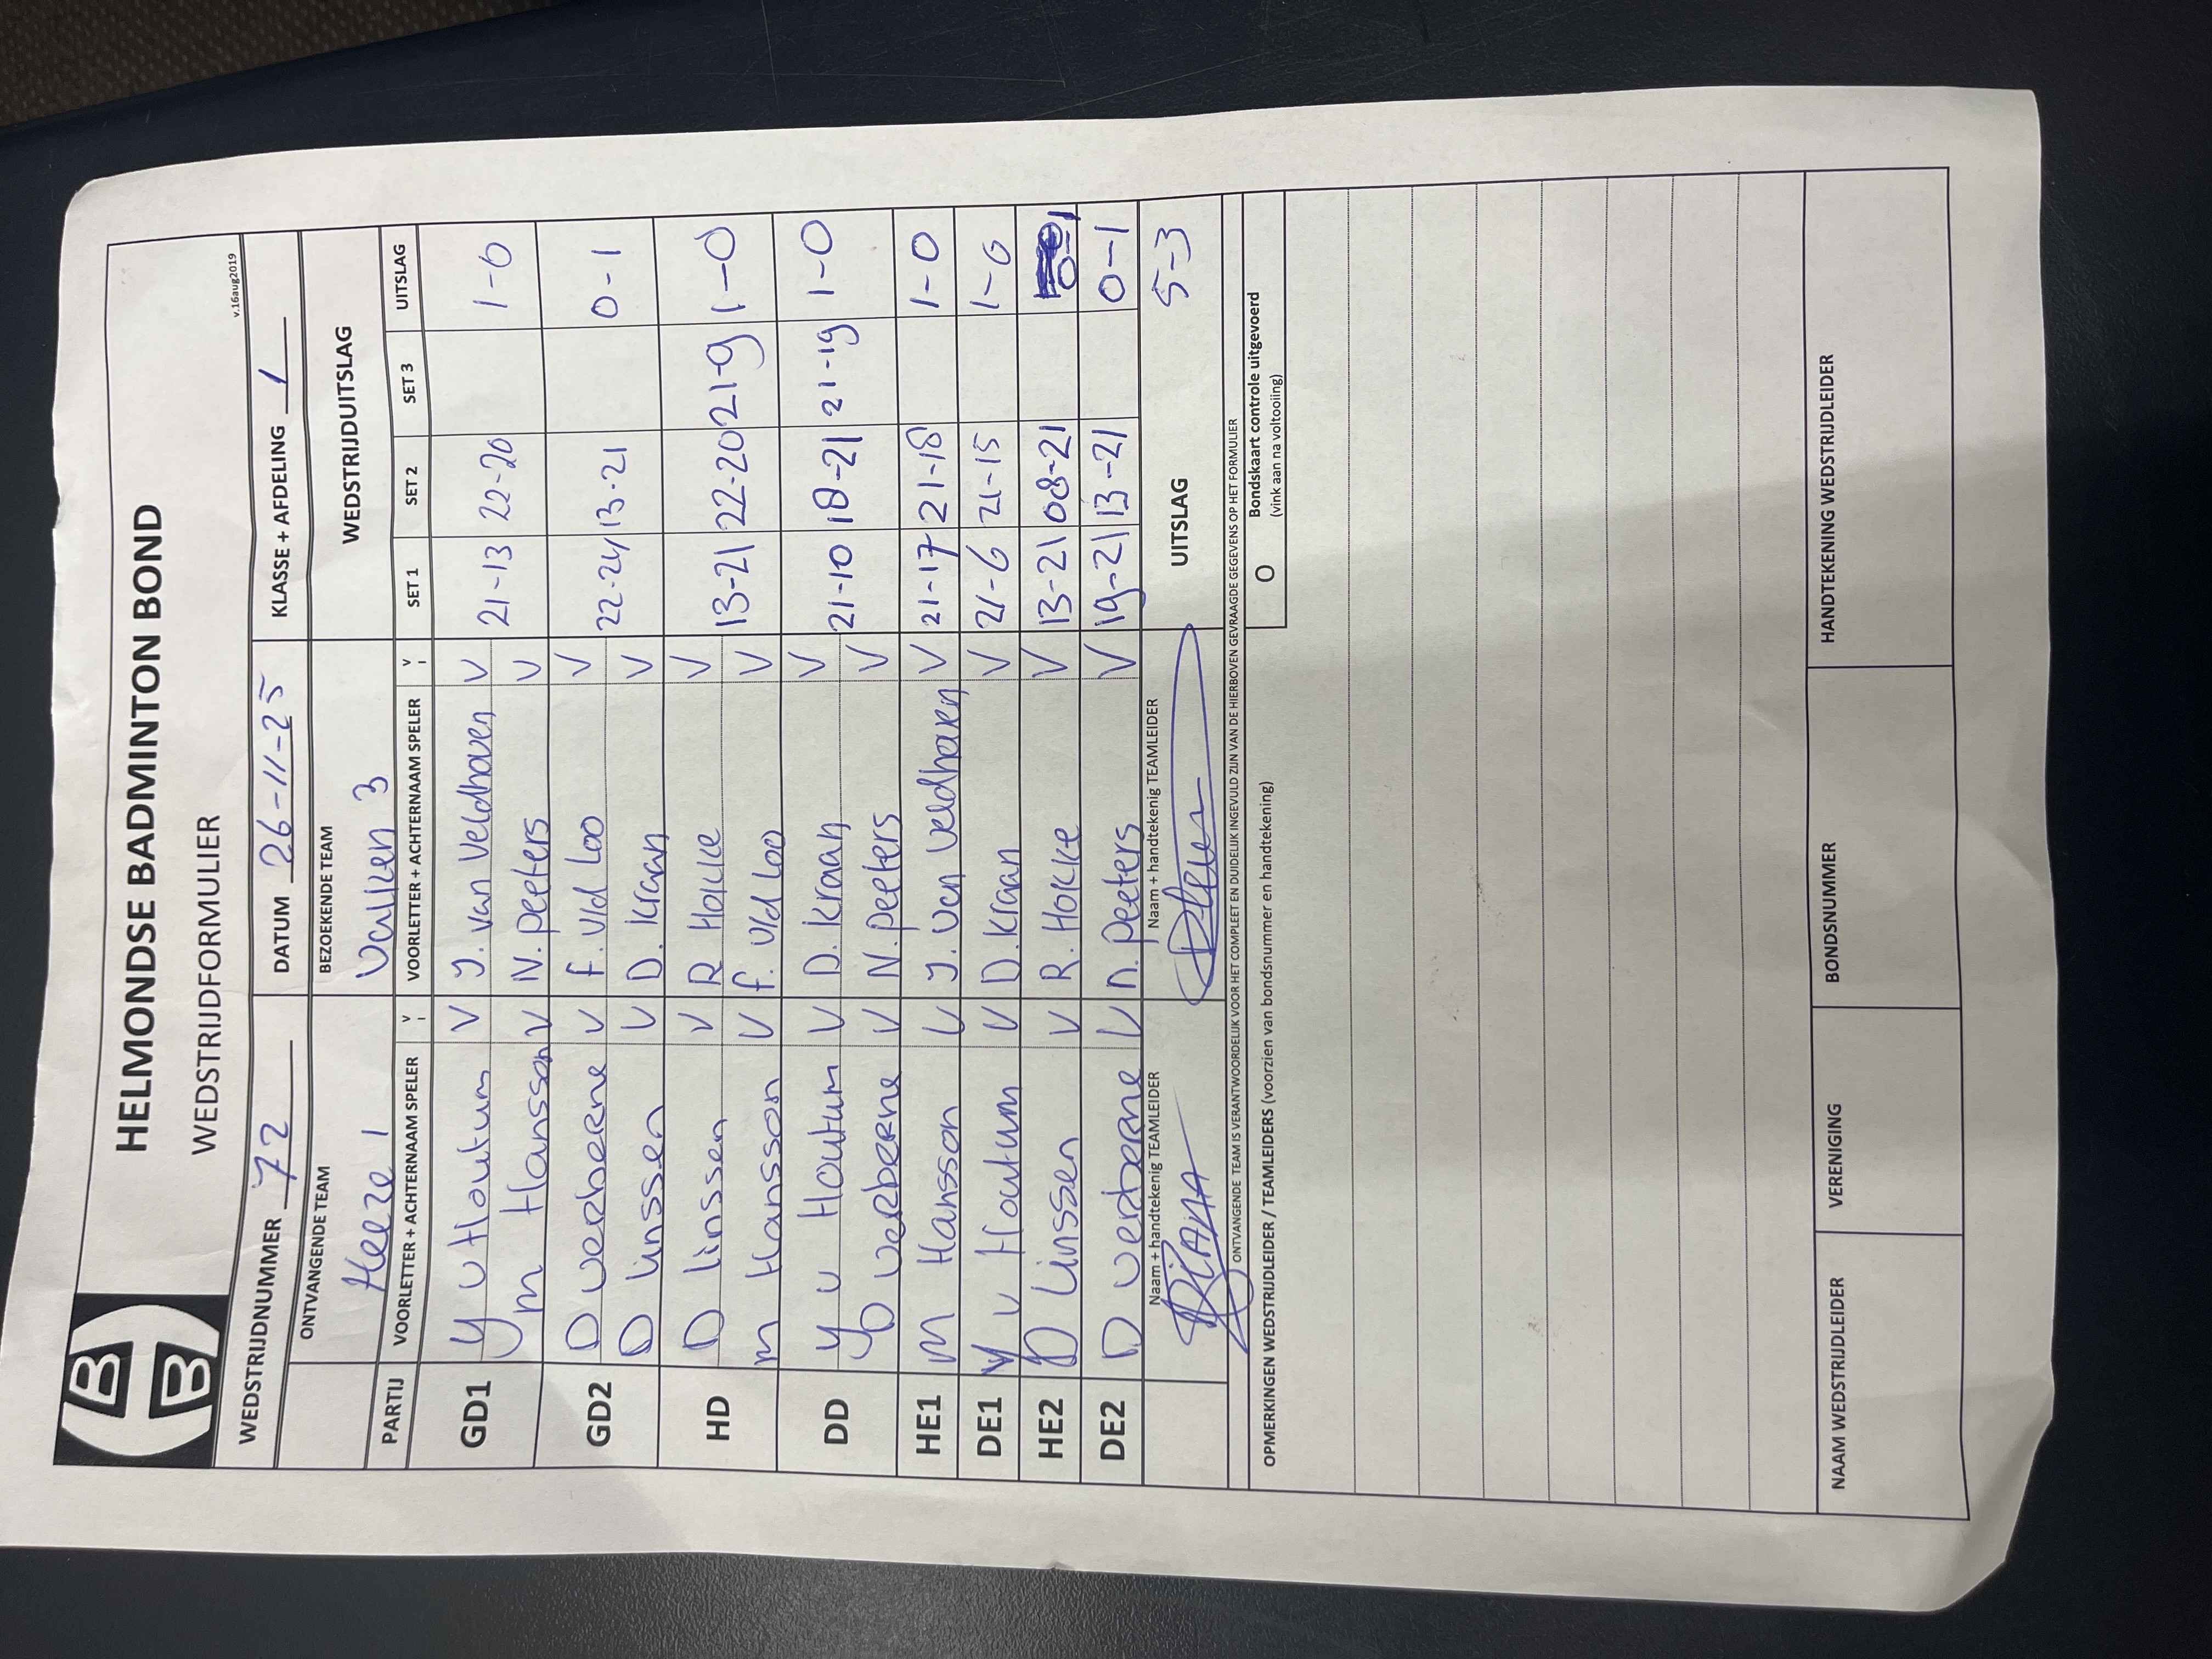 HELMONDSE BADMINTON BOND
WEDSTRIJDFORMULIER
v.16aug2019
WEDSTRIJDNUMMER 72 DATUM 26-11-25 KLASSE + AFDELING 1
ONTVANGENDE TEAM BEZOEKENDE TEAM WEDSTRIJDUITSLAG
Heeze 1 Valken 3
PARTIJ VOORLETTER + ACHTERNAAM SPELER V VOORLETTER + ACHTERNAAM SPELER V SET 1 SET 2 SET 3 UITSLAG
GD1 Y v Houtum V J. van Veldhoven V 21-13 22-20 1-0
m Hansson V N. Peeters V
GD2 D verberne V F. v/d Loo V 22-24 13-21 0-1
D Linssen V D. Kraan V
HD D linssen V R Hokke V 13-21 22-20 21-9 1-0
m Hansson V F. v/d Loo V
DD Y v Houtum V D. Kraan V 21-10 18-21 21-19 1-0
D verberne V N. Peeters V
HE1 m Hansson V J. van Veldhoven V 21-17 21-18 1-0
DE1 Y v Houtum V D. Kraan V 21-6 21-15 1-0
HE2 D Linssen V R. Hokke V 13-21 08-21 0-1
DE2 D verberne V n. Peeters V 19-21 13-21 0-1
Naam + handtekenig TEAMLEIDER Naam + handtekenig TEAMLEIDER UITSLAG 5-3
ONTVANGENDE TEAM IS VERANTWOORDELIJK VOOR HET COMPLEET EN DUIDELIJK INGEVULD ZIJN VAN DE HIERBOVEN GEVRAAGDE GEGEVENS OP HET FORMULIER
OPMERKINGEN WEDSTRIJDLEIDER / TEAMLEIDERS (voorzien van bondsnummer en handtekening)
O Bondskaart controle uitgevoerd
(vink aan na voltooiing)
NAAM WEDSTRIJDLEIDER VERENIGING BONDSNUMMER HANDTEKENING WEDSTRIJDLEIDER